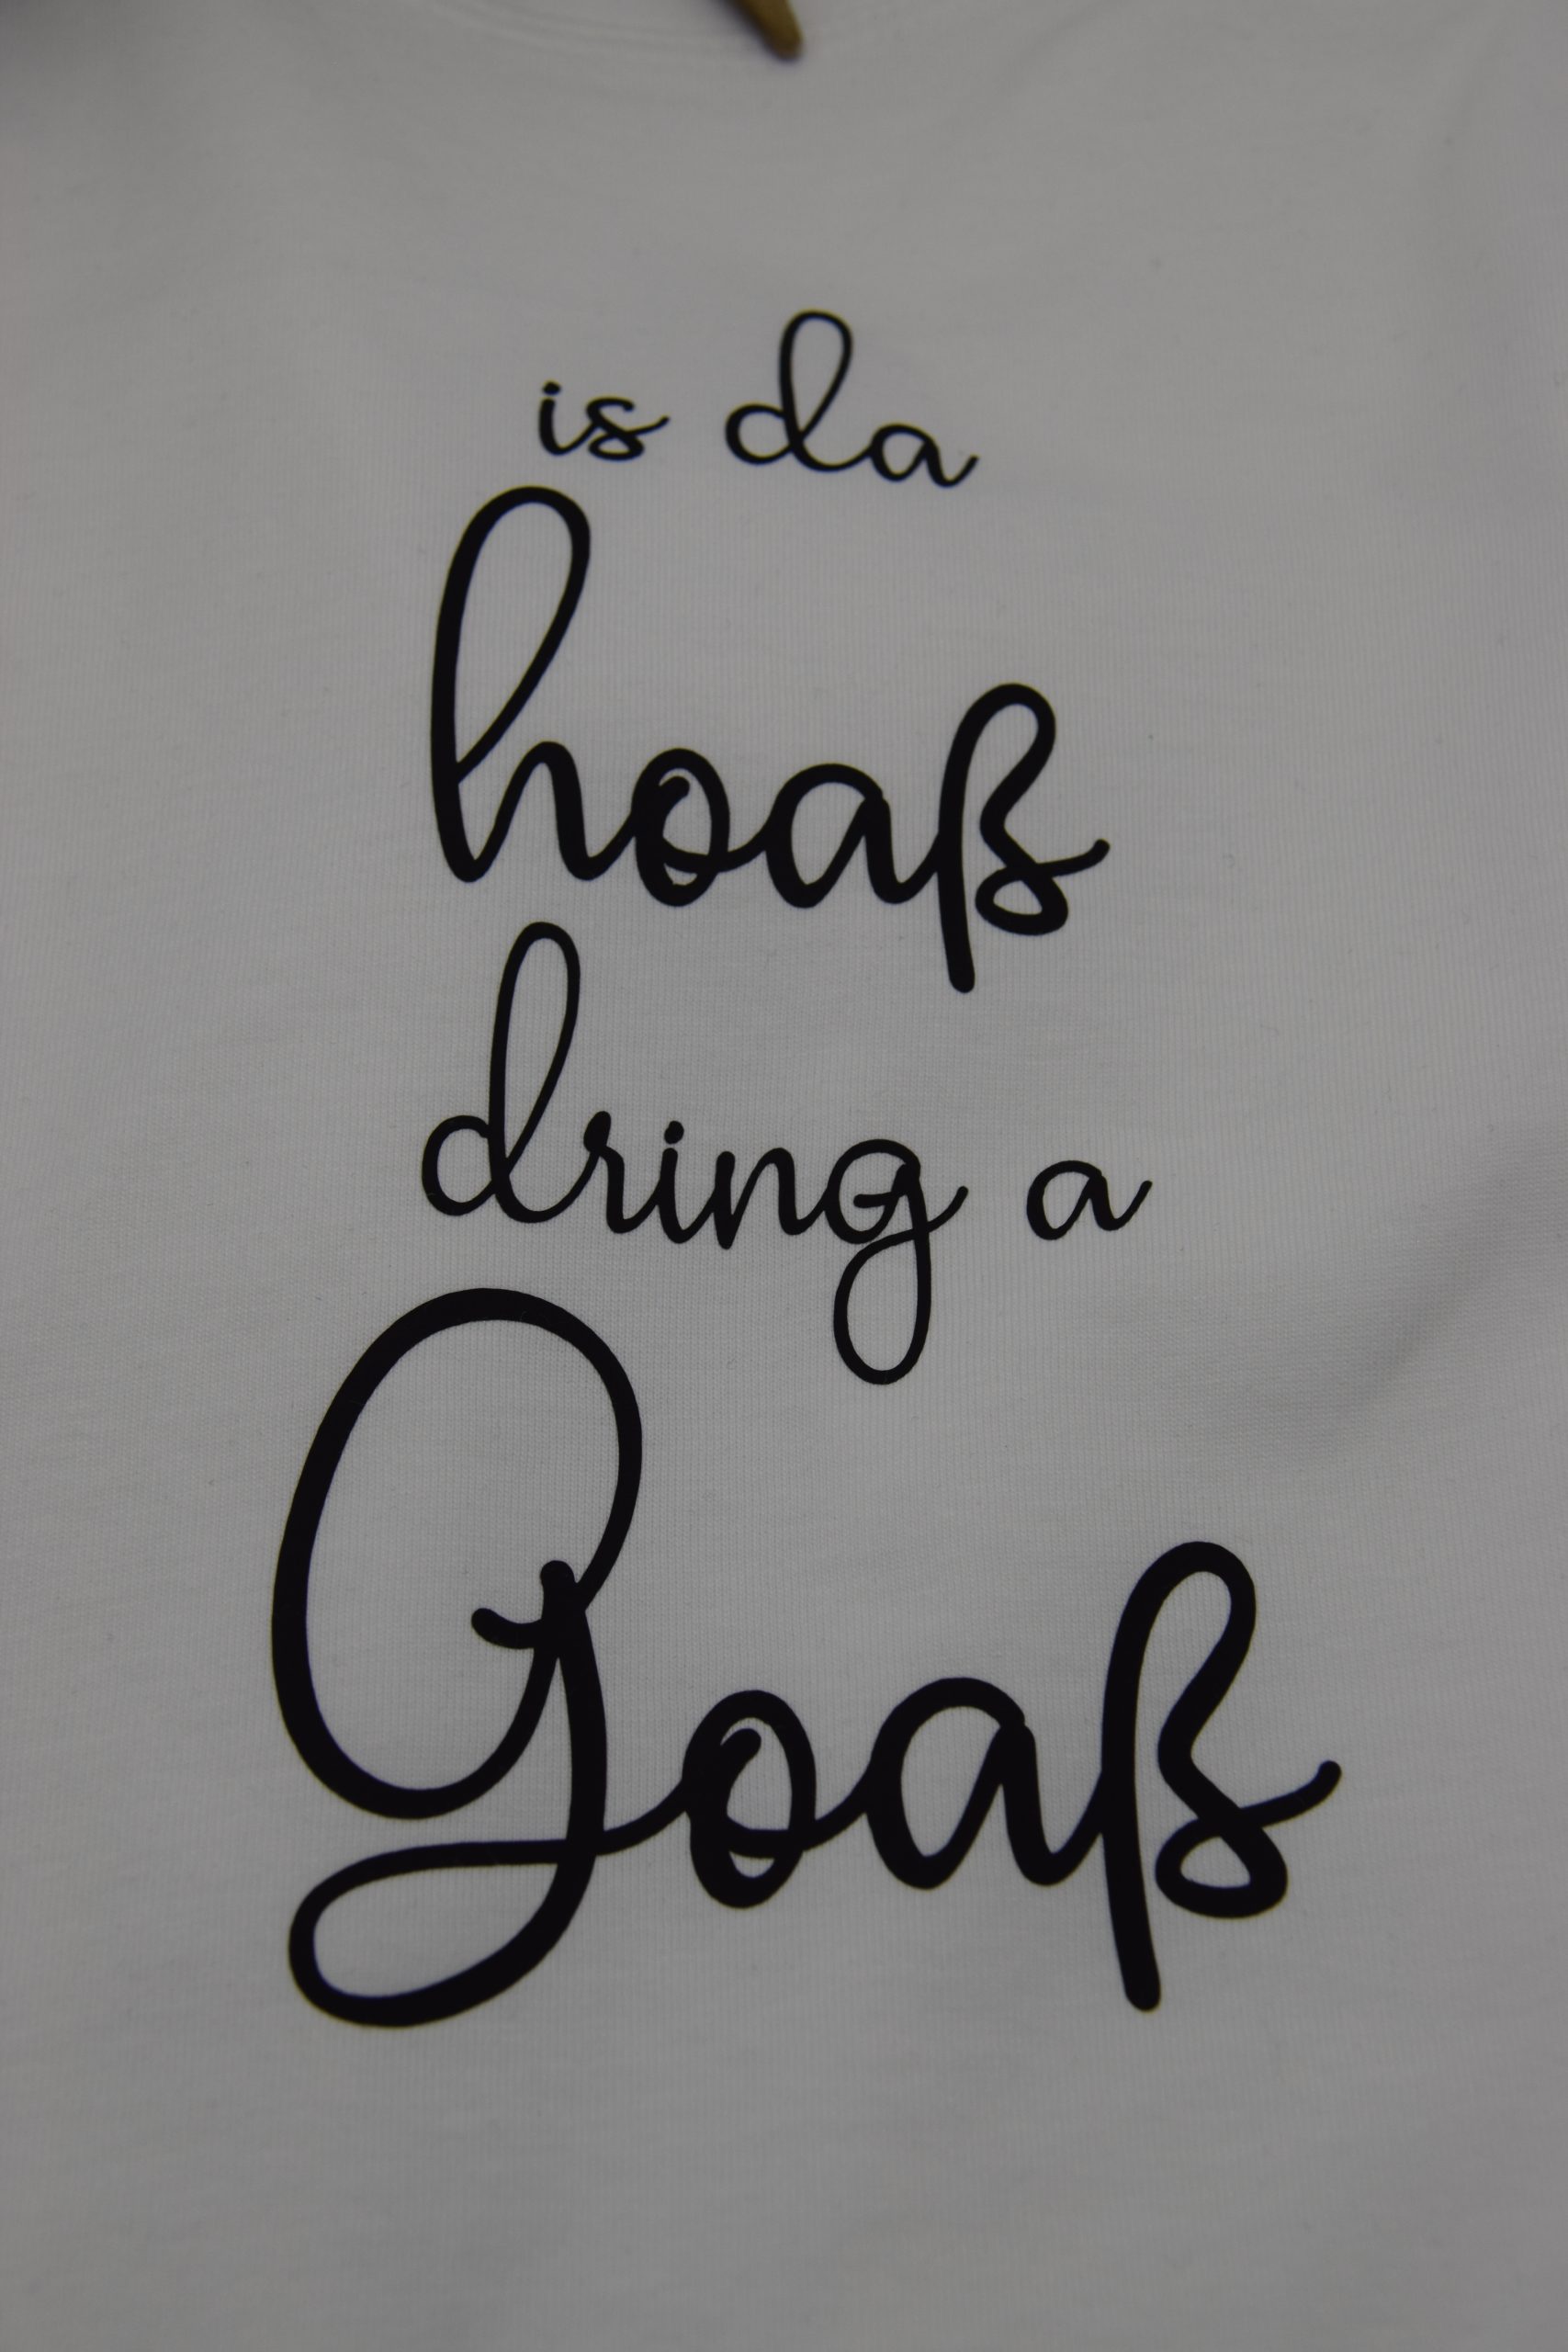 is da
hoaß
dring a
Goaß